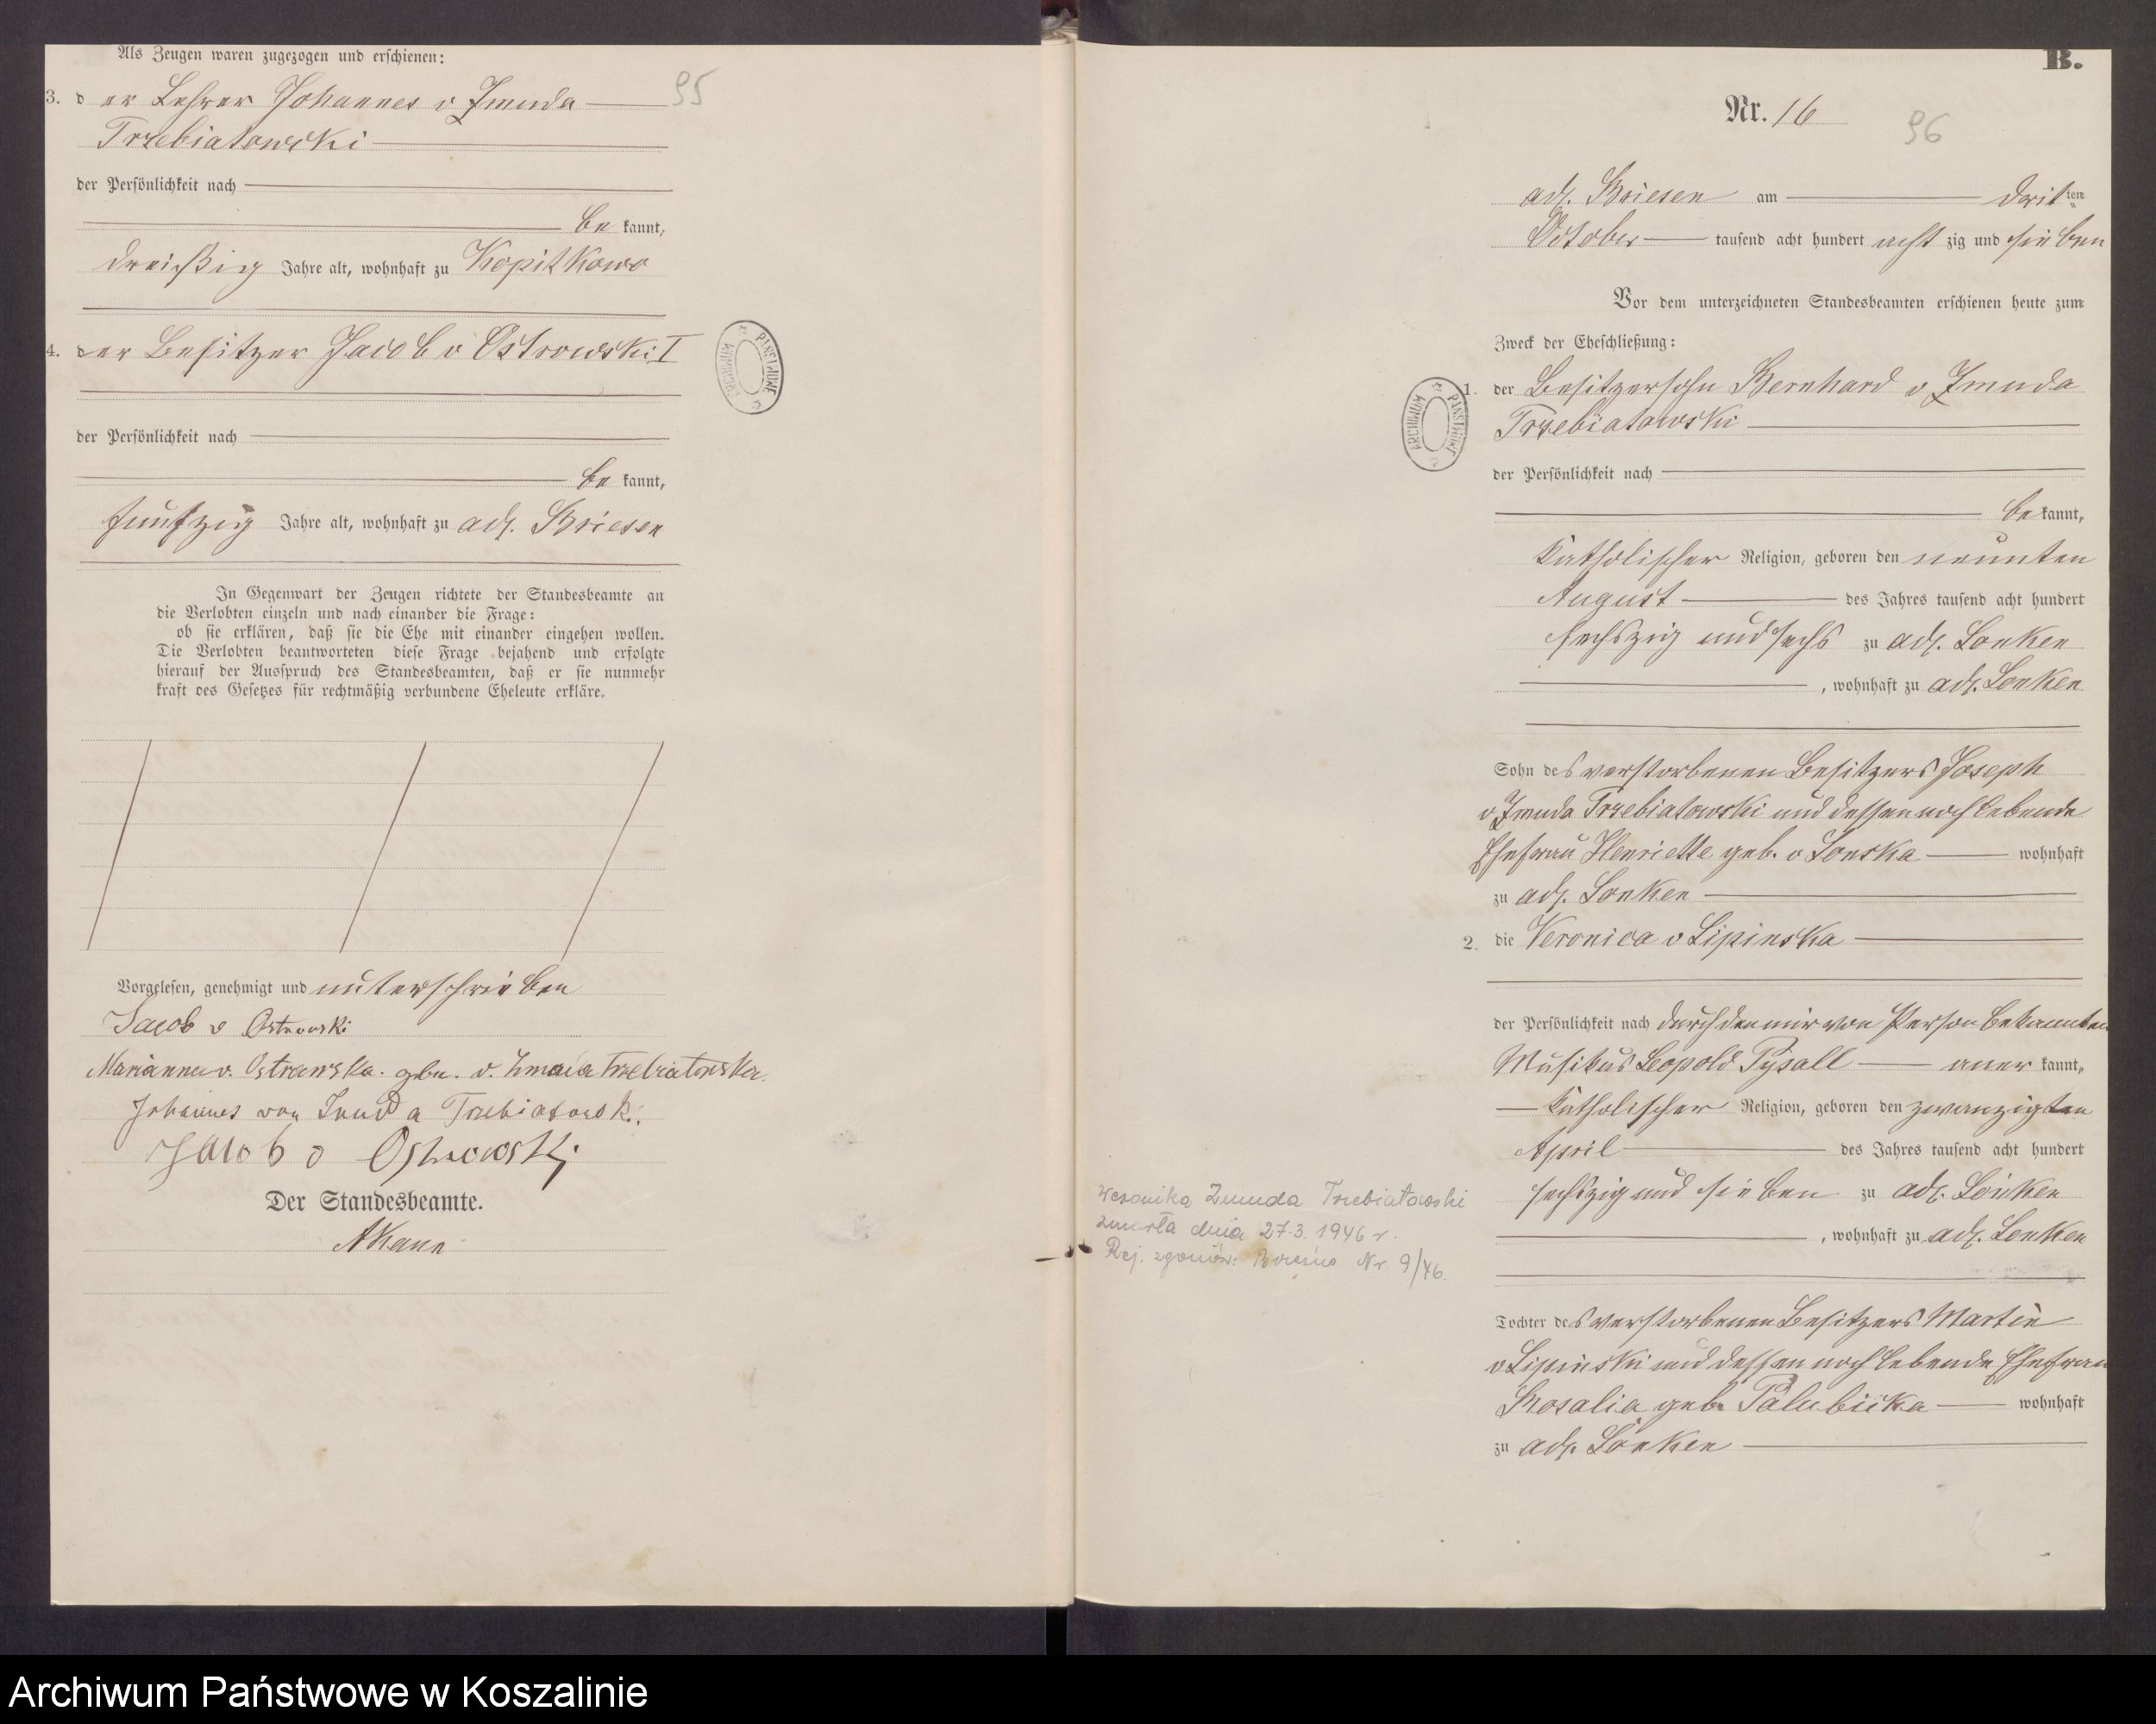 Als Zeugen waren zugezogen und erschienen:
95
3. der Lehrer Johannes v Zmuda
Trzebiatowski
der Persönlichkeit nach
bekannt,
dreißig Jahre alt, wohnhaft zu Kopitkowo
4. der Besitzer Jacob v Ostrowski I
der Persönlichkeit nach
bekannt,
funfzig Jahre alt, wohnhaft zu adl. Briesen
In Gegenwart der Zeugen richtete der Standesbeamte an
die Verlobten einzeln und nach einander die Frage:
ob sie erklären, daß sie die Ehe mit einander eingehen wollen.
Die Verlobten beantworteten diese Frage bejahend und erfolgte
hierauf der Ausspruch des Standesbeamten, daß er sie nunmehr
kraft des Gesetzes für rechtmäßig verbundene Eheleute erkläre.
Vorgelesen, genehmigt und unterschrieben
Jacob v Ostrowski
Marianna v. Ostrowska. geb. v. Zmuda Trzebiatowska.
Johannes von Zmuda Trzebiatowski.
Jacob v Ostrowski
Der Standesbeamte.
ARCHIWUM PAŃSTWOWE
B.
Nr. 16
96
adl. Briesen am dritten
October tausend acht hundert achtzig und sieben
Vor dem unterzeichneten Standesbeamten erschienen heute zum
Zweck der Eheschließung:
1. der Besitzersohn Bernhard v Zmuda
Trzebiatowski
der Persönlichkeit nach
bekannt,
katholischer Religion, geboren den neunten
August des Jahres tausend acht hundert
sechszig und sechs zu adl. Lonken
, wohnhaft zu adl. Lonken
Sohn des verstorbenen Besitzers Joseph
v Zmuda Trzebiatowski und dessen noch lebende
Ehefrau Henriette geb. v Lonska wohnhaft
zu adl. Lonken
2. die Veronica v Lipinska
der Persönlichkeit nach durch den mir von Person bekannten
Musikus Leopold Pysall anerkannt,
katholischer Religion, geboren den zwanzigten
April des Jahres tausend acht hundert
sechszig und sieben zu adl. Lonken
, wohnhaft zu adl. Lonken
Tochter des verstorbenen Besitzers Martin
v Lipinski und dessen noch lebende Ehefrau
Rosalia geb. Palubicka wohnhaft
zu adl. Lonken
ARCHIWUM PAŃSTWOWE
Weronika Zmuda Trzebiatowski
zmarła dnia 27.3.1946 r.
Rej. zgonów: Brzeźno Nr 9/46.
Archiwum Państwowe w Koszalinie